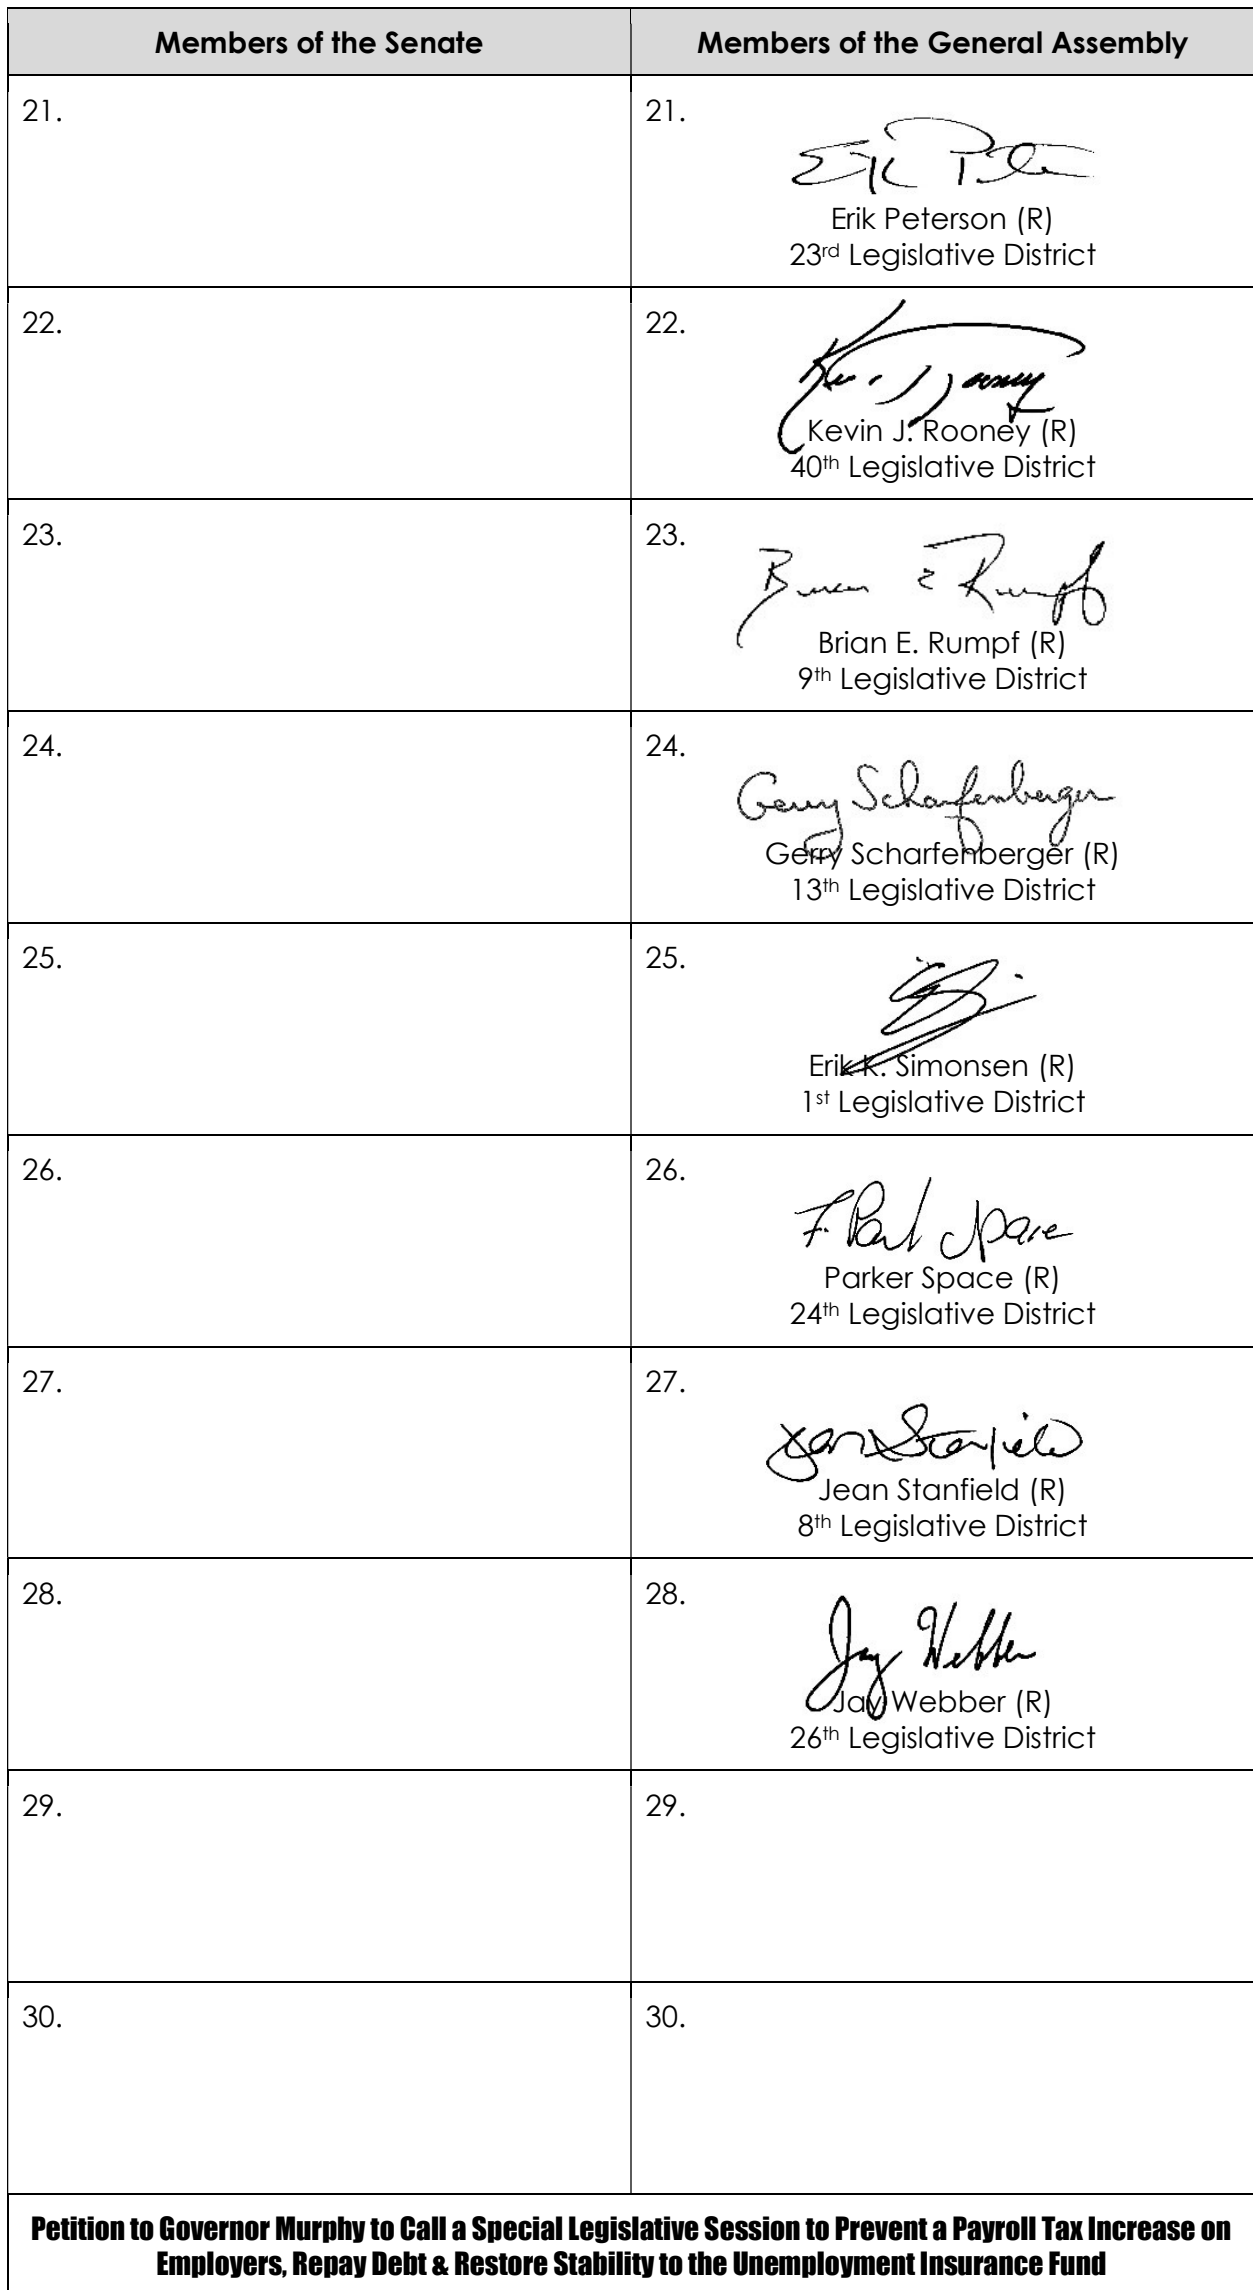 Members of the Senate
Members of the General Assembly
21.
21.
Erik Peterson (R)
23rd Legislative District
22.
22.
Kevin J. Rooney (R)
40th Legislative District
23.
23.
Brian E Rumpf
Brian E. Rumpf (R)
9th Legislative District
24.
24.
Gerry Scharfenberger
Gerry Scharfenberger (R)
13th Legislative District
25.
25.
Erik K. Simonsen (R)
1st Legislative District
26.
26.
Parker Space (R)
24th Legislative District
27.
27.
Jean Stanfield (R)
8th Legislative District
28.
28.
Jay Webber
Jay Webber (R)
26th Legislative District
29.
29.
30.
30.
Petition to Governor Murphy to Call a Special Legislative Session to Prevent a Payroll Tax Increase on
Employers, Repay Debt & Restore Stability to the Unemployment Insurance Fund